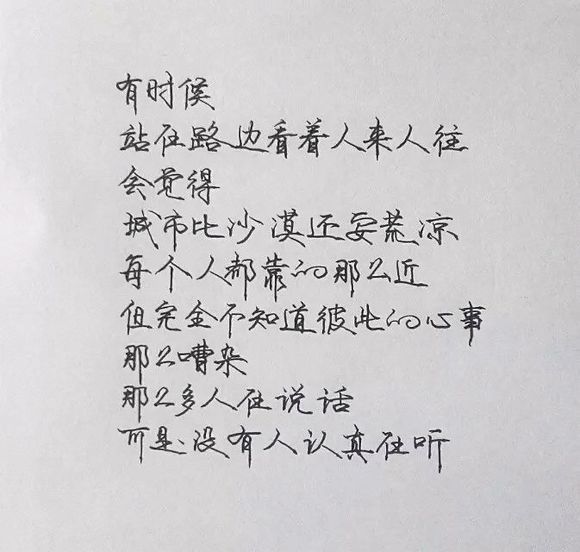 有时候
站在路边看着人来人往
会觉得
城市比沙漠还要荒凉
每个人都靠的那么近
但完全不知道彼此的心事
那么嘈杂
那么多人在说话
可是没有人认真在听